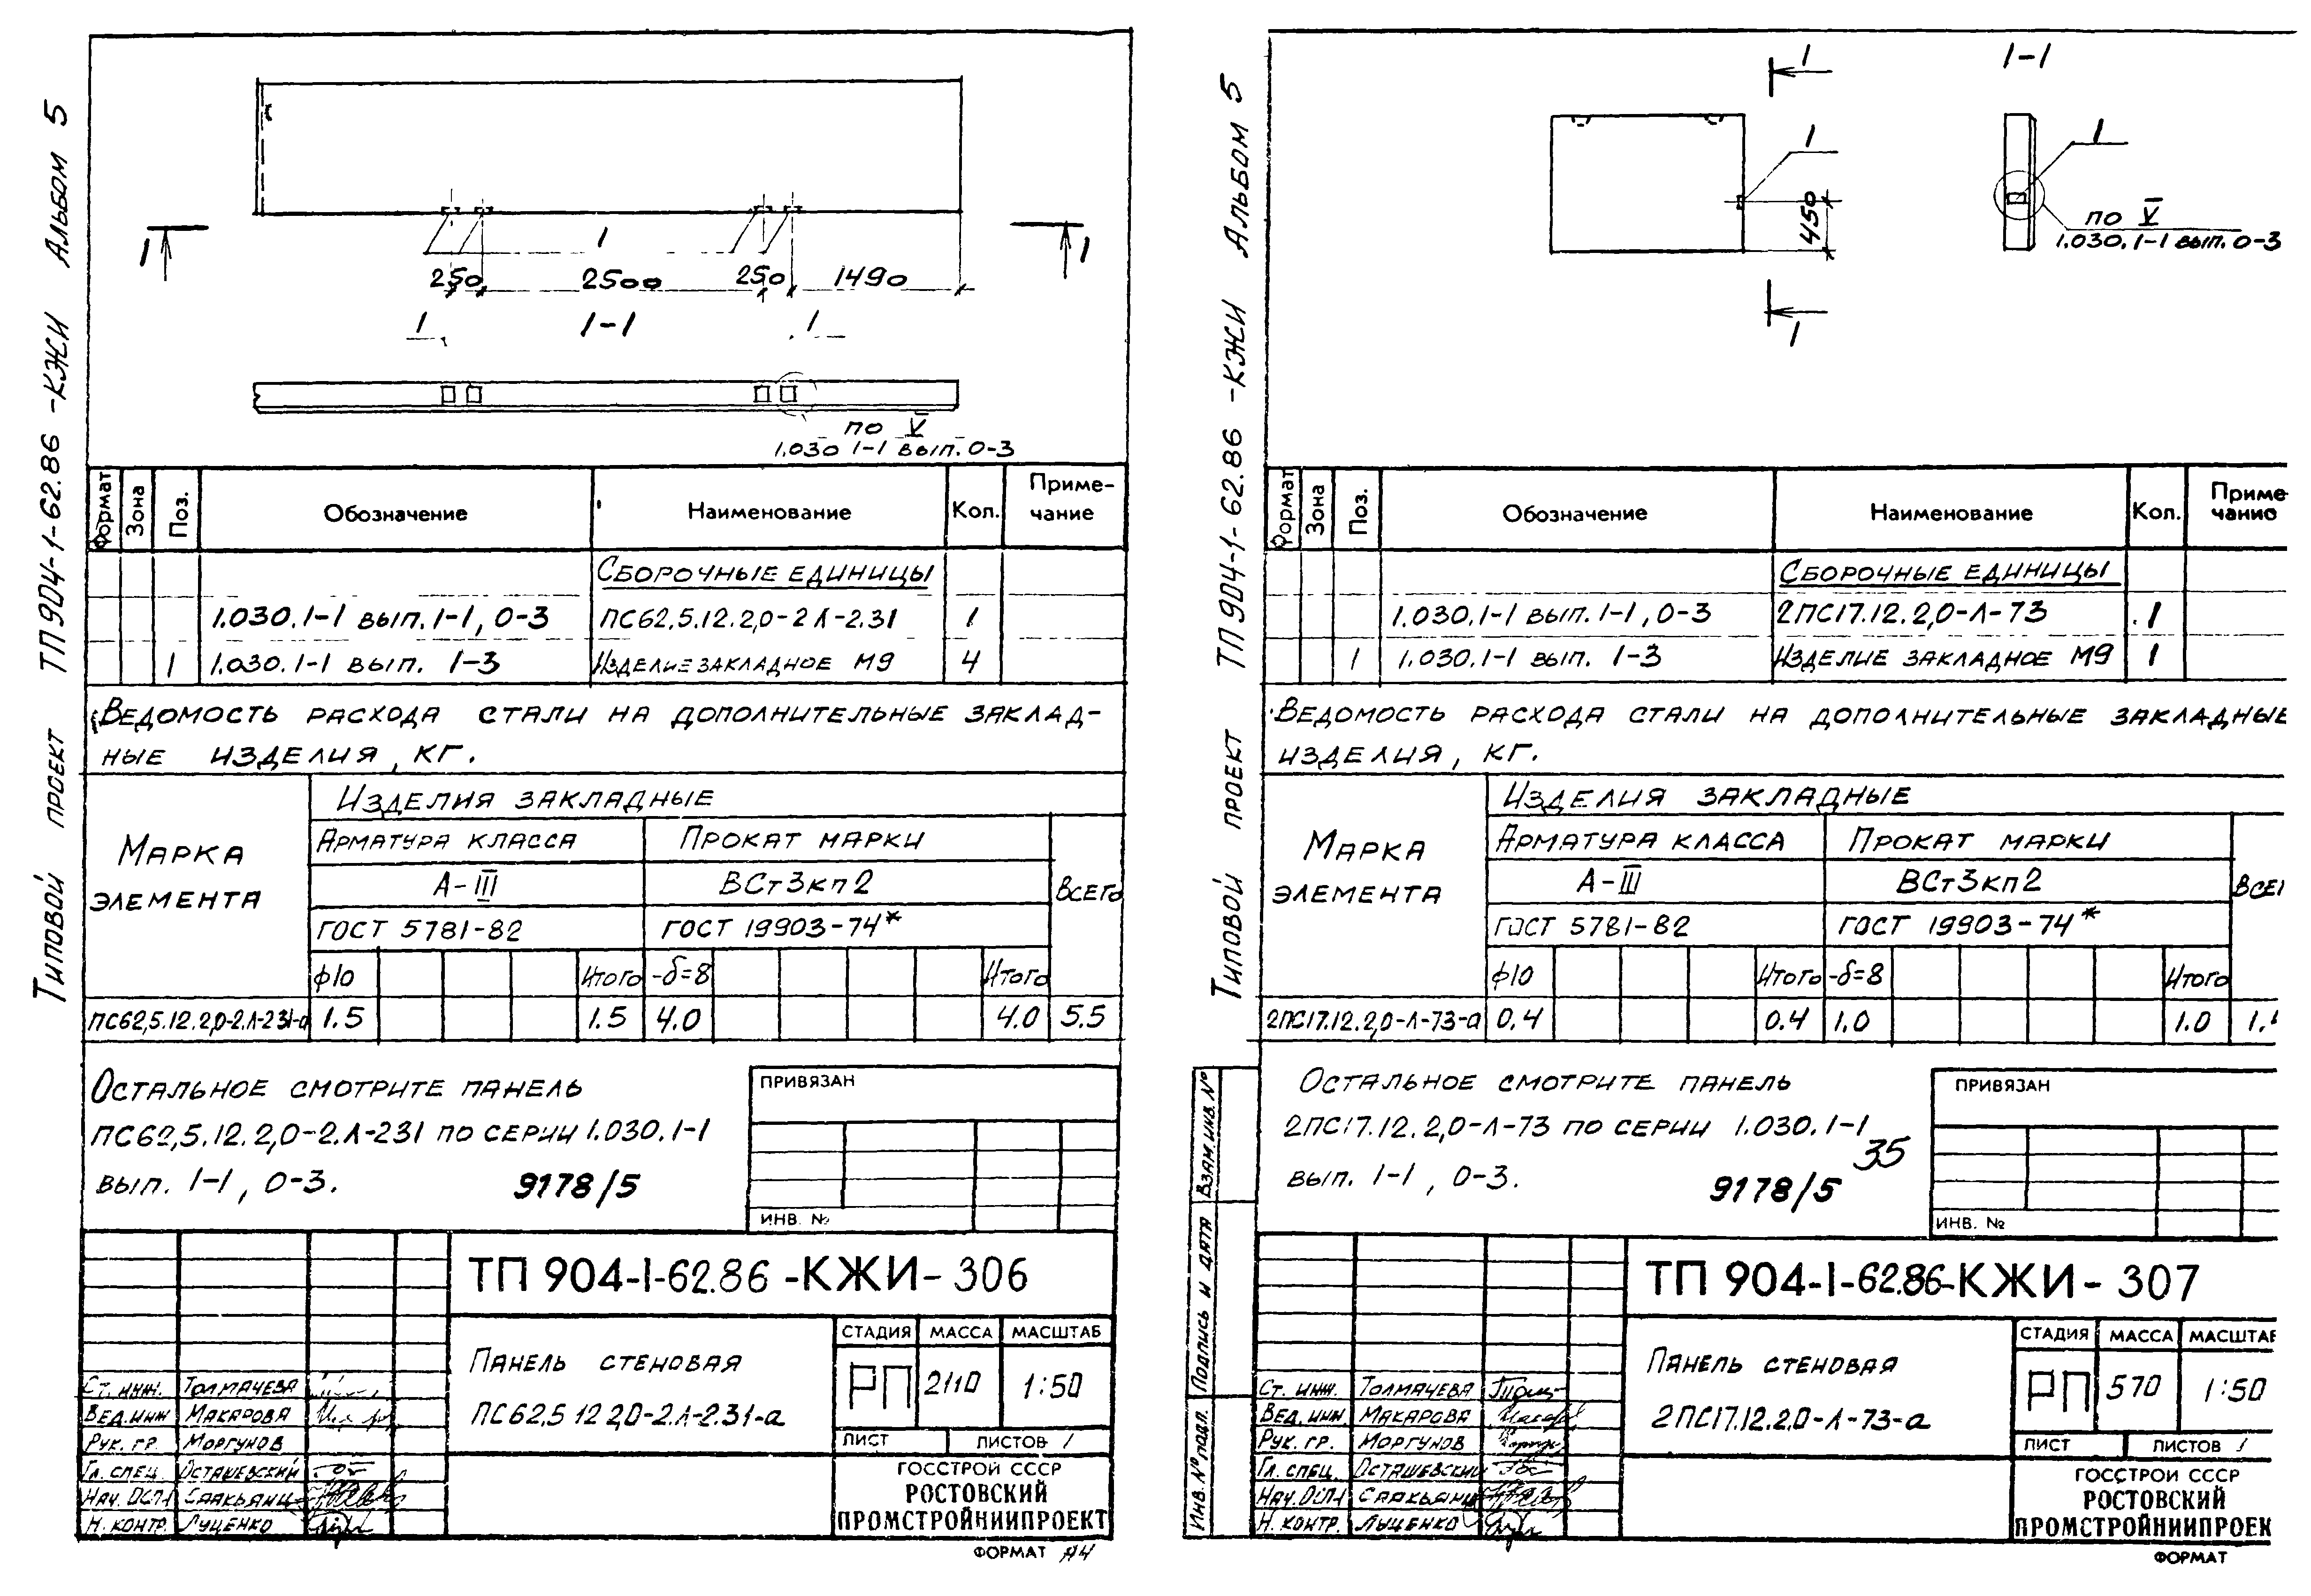 Типовой проект ТП 904-1-62.86 -КЖИ Альбом 5
1
1
1
250 2500 250 1490
1 1-1 1
по V
1.030 1-1 вып. 0-3
Формат Зона Поз. Обозначение Наименование Кол. Приме-
чание
Сборочные единицы
1.030.1-1 вып. 1-1, 0-3 ПС62,5.12.2,0-2Л-2.31 1
1 1.030.1-1 вып. 1-3 Изделие закладное М9 4
Ведомость расхода стали на дополнительные заклад-
ные изделия, кг.
Марка
элемента
Изделия закладные
Арматура класса Прокат марки
А-III ВСт3кп2 Всего
ГОСТ 5781-82 ГОСТ 19903-74*
ф10 Итого -δ=8 Итого
ПС62,5.12.2,0-2.Л-231-а 1.5 1.5 4.0 4.0 5.5
Остальное смотрите панель
ПС62,5.12.2,0-2.Л-231 по серии 1.030.1-1
вып. 1-1, 0-3. 9178/5
ПРИВЯЗАН
ИНВ. №
ТП 904-1-62.86 -КЖИ- 306
Панель стеновая
ПС62,5 12 2,0-2.Л-2.31-а
СТАДИЯ МАССА МАСШТАБ
РП 2110 1:50
ЛИСТ ЛИСТОВ 1
Ст. инж. Толмачева
Вед. инж Макарова
Рук. гр. Моргунов
Гл. спец. Осташевский
Нач. ОСП-1 Саакьянц
Н. контр. Луценко
ГОССТРОЙ СССР
РОСТОВСКИЙ
ПРОМСТРОЙНИИПРОЕКТ
ФОРМАТ А4
Типовой проект ТП 904-1-62.86 -КЖИ Альбом 5
1 1-1
1 1
450
по V
1.030.1-1 вып. 0-3
1
Формат Зона Поз. Обозначение Наименование Кол. Приме-
чание
Сборочные единицы
1.030.1-1 вып. 1-1, 0-3 2ПС17.12.2,0-Л-73 1
1 1.030.1-1 вып. 1-3 Изделие закладное М9 1
Ведомость расхода стали на дополнительные закладные
изделия, кг.
Марка
элемента
Изделия закладные
Арматура класса Прокат марки
А-III ВСт3кп2 Все
ГОСТ 5781-82 ГОСТ 19903-74*
ф10 Итого -δ=8 Итого
2ПС17.12.2,0-Л-73-а 0,4 0.4 1.0 1.0 1.
Остальное смотрите панель
2ПС17.12.2,0-Л-73 по серии 1.030.1-1
вып. 1-1, 0-3. 9178/5 35
ПРИВЯЗАН
ИНВ. №
Взам. инв. №
Подпись и дата
Инв. № подл.
ТП 904-1-62.86-КЖИ- 307
Панель стеновая
2ПС17.12.2.0-Л-73-а
СТАДИЯ МАССА МАСШТАБ
РП 570 1:50
ЛИСТ ЛИСТОВ 1
Ст. инж. Толмачева
Вед. инж. Макарова
Рук. гр. Моргунов
Гл. спец. Осташевский
Нач. ОСП-1 Саакьянц
Н. контр. Луценко
ГОССТРОЙ СССР
РОСТОВСКИЙ
ПРОМСТРОЙНИИПРОЕК
ФОРМАТ